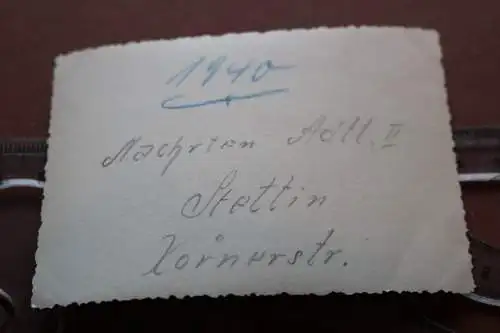 1940
Nachrien Abtl. II
Stettin
Körnerstr.